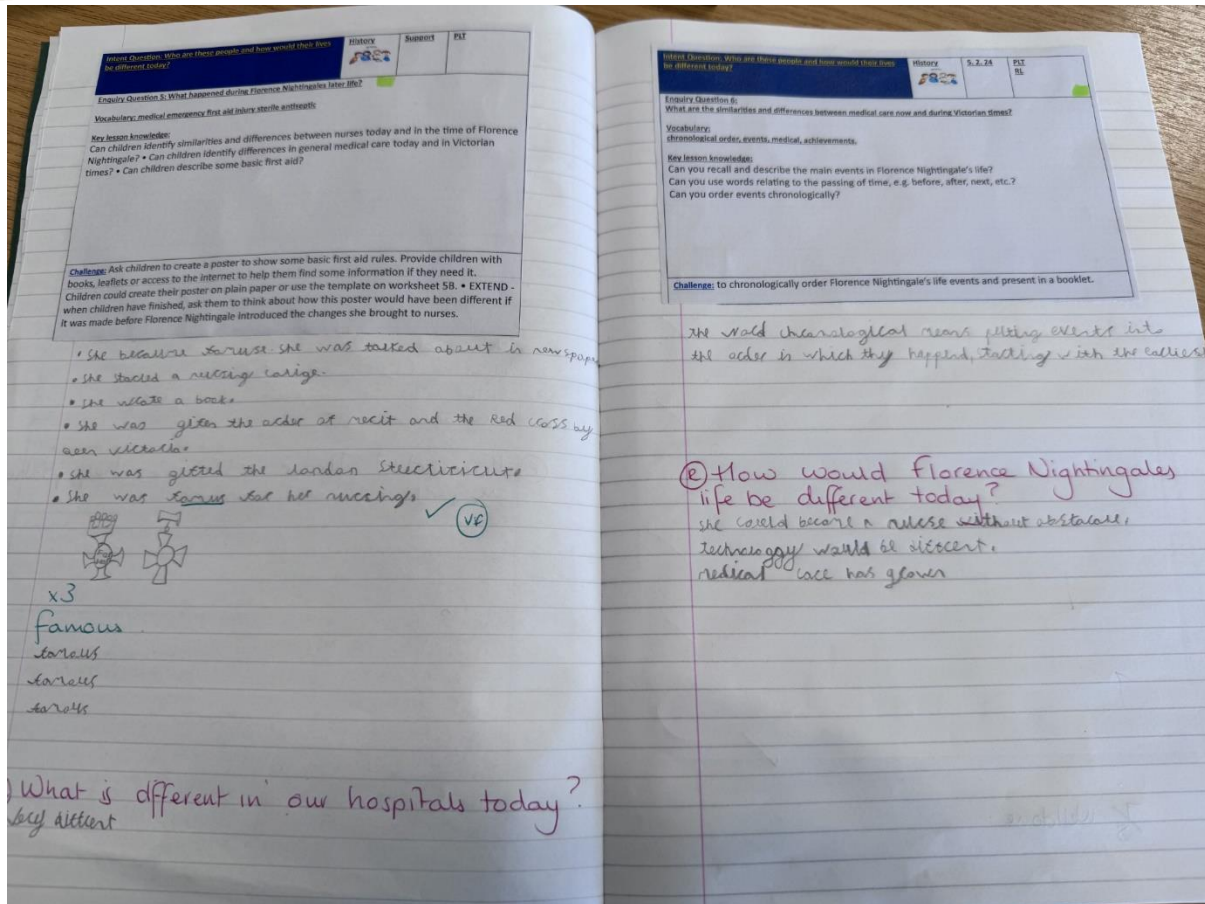 Intent Question: Who are these people and how would their lives
be different today?
History
Support
PLT
Enquiry Question 5: What happened during Florence Nightingales later life?
Vocabulary: medical emergency first aid injury sterile antiseptic
Key lesson knowledge:
Can children identify similarities and differences between nurses today and in the time of Florence
Nightingale? • Can children identify differences in general medical care today and in Victorian
times? • Can children describe some basic first aid?
Challenge: Ask children to create a poster to show some basic first aid rules. Provide children with
books, leaflets or access to the internet to help them find some information if they need it.
Children could create their poster on plain paper or use the template on worksheet 5B. • EXTEND -
when children have finished, ask them to think about how this poster would have been different if
it was made before Florence Nightingale introduced the changes she brought to nurses.
• She
she was talked about in newspaper
• she
a nursing
• she wrote a book.
• she was given the order of merit and the Red cross by
• she was gifted the london
• She was famus for her nursing,
VF
x3
famous
What is different in our hospitals today?
very
Intent Question: Who are these people and how would their lives
be different today?
History
5.2.24
PLT
RL
Enquiry Question 6:
What are the similarities and differences between medical care now and during Victorian times?
Vocabulary:
chronological order, events, medical, achievements,
Key lesson knowledge:
Can you recall and describe the main events in Florence Nightingale's life?
Can you use words relating to the passing of time, e.g. before, after, next, etc.?
Can you order events chronologically?
Challenge: to chronologically order Florence Nightingale's life events and present in a booklet.
the word chronological means putting events into
the order in which they happend, starting with the earliest
R How would Florence Nightingales
life be different today?
she could become a nurse without
would be
medical care has grown